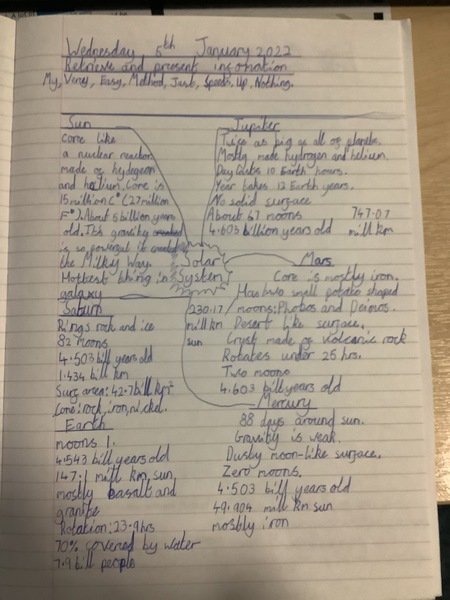 Wednesday 5th January 2022
Retrieve and present infomation
My, Very, Easy, Method, Just, Speeds, Up, Nothing.
Sun
Core like
a nuclear reactor
made of hydegeon
and helium. Core is
15 million C° (27 million
F°). About 5 billion years
old. It's gravity created
is so powerful it created
the Milky Way.
Hottest thing in
galaxy
Jupiter
Twice as big as all of planets.
Mostly made hydrogen and helium.
Day lasts 10 Earth hours.
Year takes 12 Earth years.
No solid surface
About 67 moons
4.603 billion years old
747.07
mill km
Solar
System
Mars
Core is mostly iron.
Has two small potato shaped
moons: Phobos and Deimos.
Desert like surface.
Crust made of volcanic rock
Rotates under 25 hrs.
Two moons
4.603 bill years old
230.17
mill km
sun
Saturn
Rings rock and ice
82 moons
4.503 bill years old
1.434 bill km
Surf area: 42.7 bill km²
Cone: rock, iron, nickel.
Mercury
88 days around sun.
Gravity is weak.
Dusty moon-like surface.
Zero moons.
4.503 bill years old
49.904 mill km sun
mostly iron
Earth
moons 1.
4.543 bill years old
147.1 mill km sun
mostly basalt and
granite
Rotation: 23.9 hrs
70% covered by water
7.9 bill people